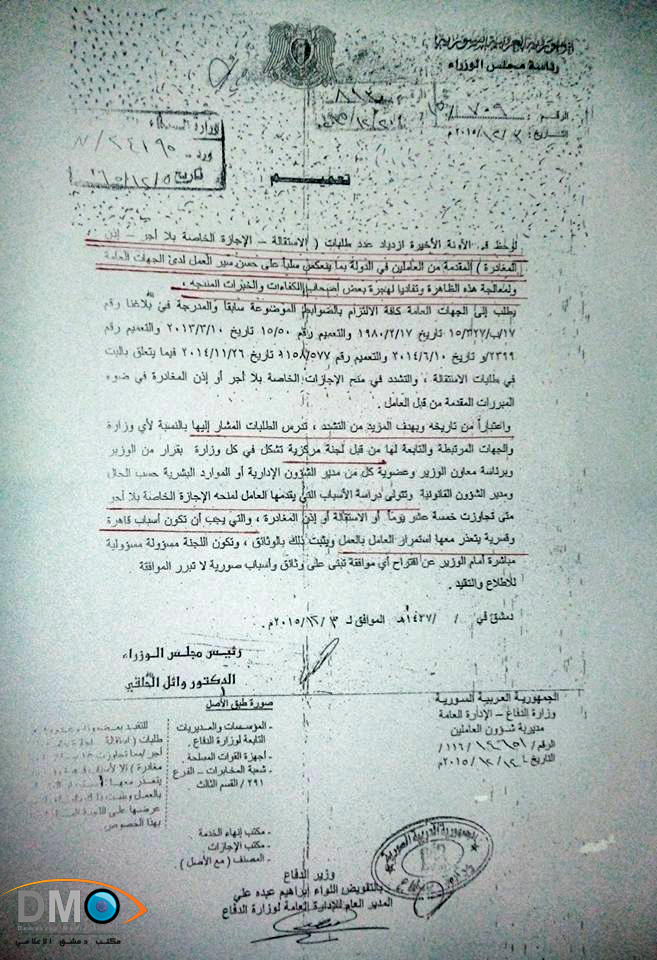 الجمهورية العربية السورية
رئاسة مجلس الوزراء
الرقم :
التاريخ : ٣ / ١٢ / ٢٠١٥م
الرقم
ورد
تاريخ ٥/١٢/
تعميم
لوحظ في الآونة الأخيرة ازدياد عدد طلبات ( الاستقالة – الإجازة الخاصة بلا أجر – إذن
المغادرة ) المقدمة من العاملين في الدولة بما ينعكس سلباً على حسن سير العمل لدى الجهات العامة
ولمعالجة هذه الظاهرة وتفاديا لهجرة بعض أصحاب الكفاءات والخبرات المنتجه ،
يطلب إلى الجهات العامة كافة الالتزام بالضوابط الموضوعة سابقاً والمدرجة في بلاغنا رقم
١٧/ب/١٥/٣٢٧ تاريخ ١٩٨٠/٢/١٧ والتعميم رقم ١٥/٥٠ تاريخ ٢٠١٣/٣/١٠ والتعميم رقم
٢٣٩٩/و تاريخ ٢٠١٤/٦/١٠ والتعميم رقم تاريخ ٢٠١٤/١١/٢٦ فيما يتعلق بالبت
في طلبات الاستقالة ، والتشدد في منح الإجازات الخاصة بلا أجر أو إذن المغادرة في ضوء
المبررات المقدمة من قبل العامل .
واعتباراً من تاريخه وبهدف المزيد من التشدد ، تدرس الطلبات المشار إليها بالنسبة لأي وزارة
والجهات المرتبطة والتابعة لها من قبل لجنة مركزية تشكل في كل وزارة بقرار من الوزير
وبرئاسة معاون الوزير وعضوية كل من مدير الشؤون الإدارية أو الموارد البشرية حسب الحال
ومدير الشؤون القانونية وتتولى دراسة الأسباب التي يقدمها العامل لمنحه الإجازة الخاصة بلا أجر
متى تجاوزت خمسة عشر يوماً أو الاستقالة أو إذن المغادرة ، والتي يجب أن تكون أسباب قاهرة
وقسرية يتعذر معها استمرار العامل بالعمل ويثبت ذلك بالوثائق ، وتكون اللجنة مسؤولة مسؤولية
مباشرة أمام الوزير عن اقتراح أي موافقة تبنى على وثائق وأسباب صورية لا تبرر الموافقة
للاطلاع والتقيد .
دمشق في / / ١٤٣٧هـ الموافق لـ ٣ /١٢/ ٢٠١٥م .
رئيس مجلس الوزراء
الدكتور وائل الحلقي
الجمهورية العربية السورية
وزارة الدفاع – الإدارة العامة
مديرية شؤون العاملين
الرقم /
التاريخ / ١٢/ ٢٠١٥م
صورة طبق الأصل
- المؤسسات والمديريات
التابعة لوزارة الدفاع .
- أجهزة القوات المسلحة .
- شعبة المخابرات – الفرع
٢٩١ / القسم الثالث
- مكتب إنهاء الخدمة
- مكتب الإجازات
- المصنف ( مع الأصل )
للتقيد
طلبات
أجر
مغادرة )
يتعذر معها
بالعمل
عرضها على اللجنة
بهذا الخصوص
الجمهورية العربية السورية
وزير الدفاع
بالتفويض اللواء إبراهيم عبده علي
المدير العام للإدارة العامة لوزارة الدفاع
DMO
مكتب دمشق الإعلامي